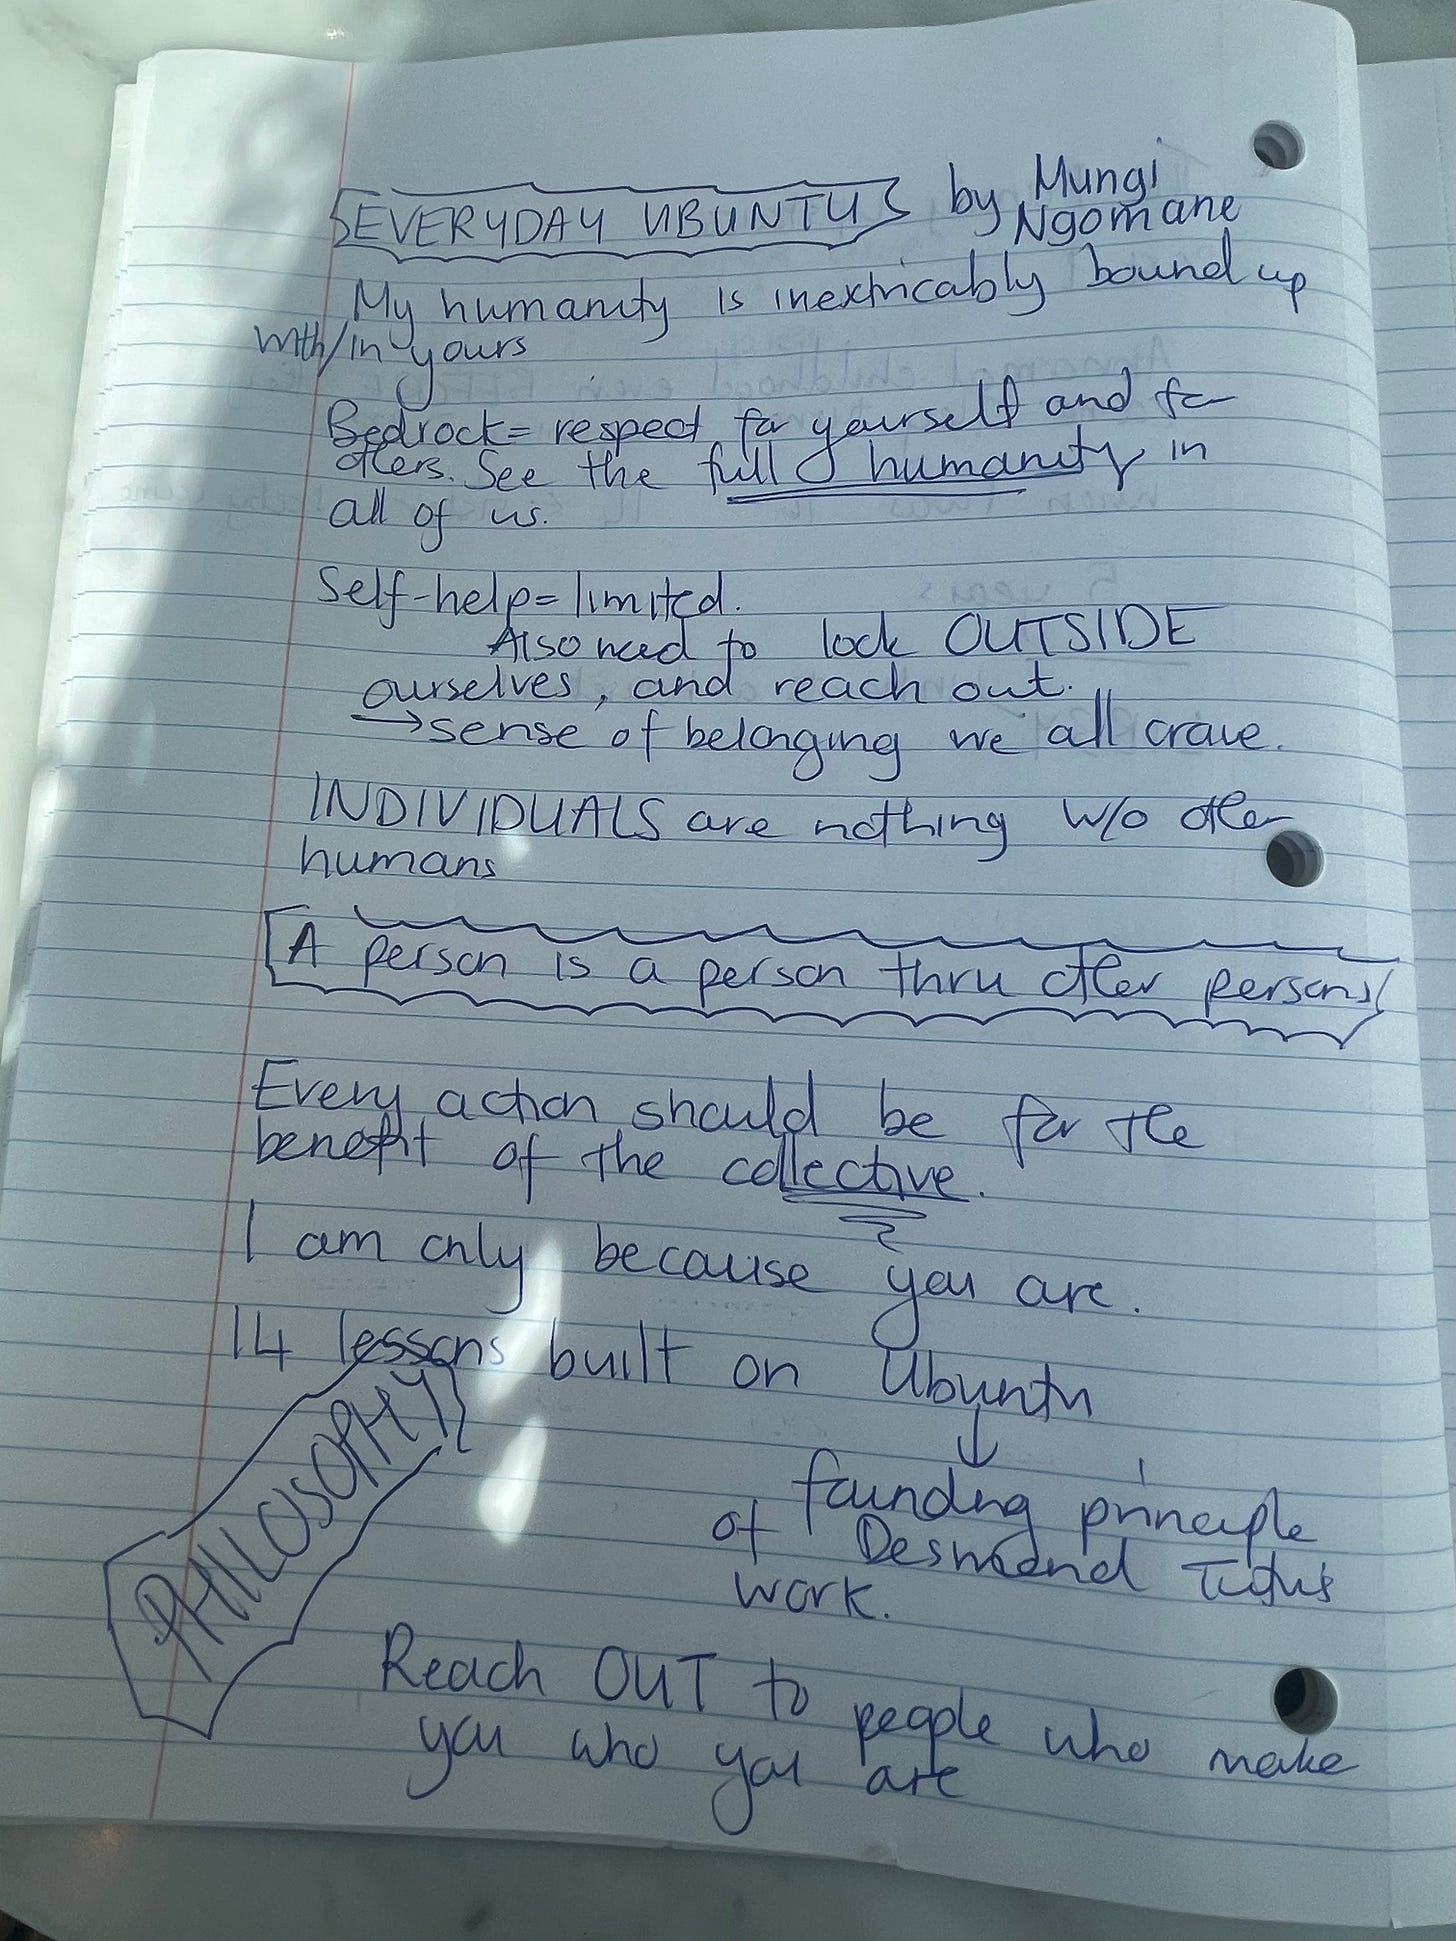 EVERYDAY UBUNTU by Mungi
Ngomane
My humanity is inextricably bound up
with/in yours
Bedrock= respect for yourself and for
others. See the full humanity in
all of us.
Self-help= limited.
Also need to look OUTSIDE
ourselves, and reach out.
→sense of belonging we all crave.
INDIVIDUALS are nothing w/o other
humans
A person is a person thru other persons
Every action should be for the
benefit of the collective.
I am only because you are.
14 lessons built on Ubuntu
PHILOSOPHY
↓
founding principle
of Desmond Tutu's
work.
Reach OUT to people who make
you who you are